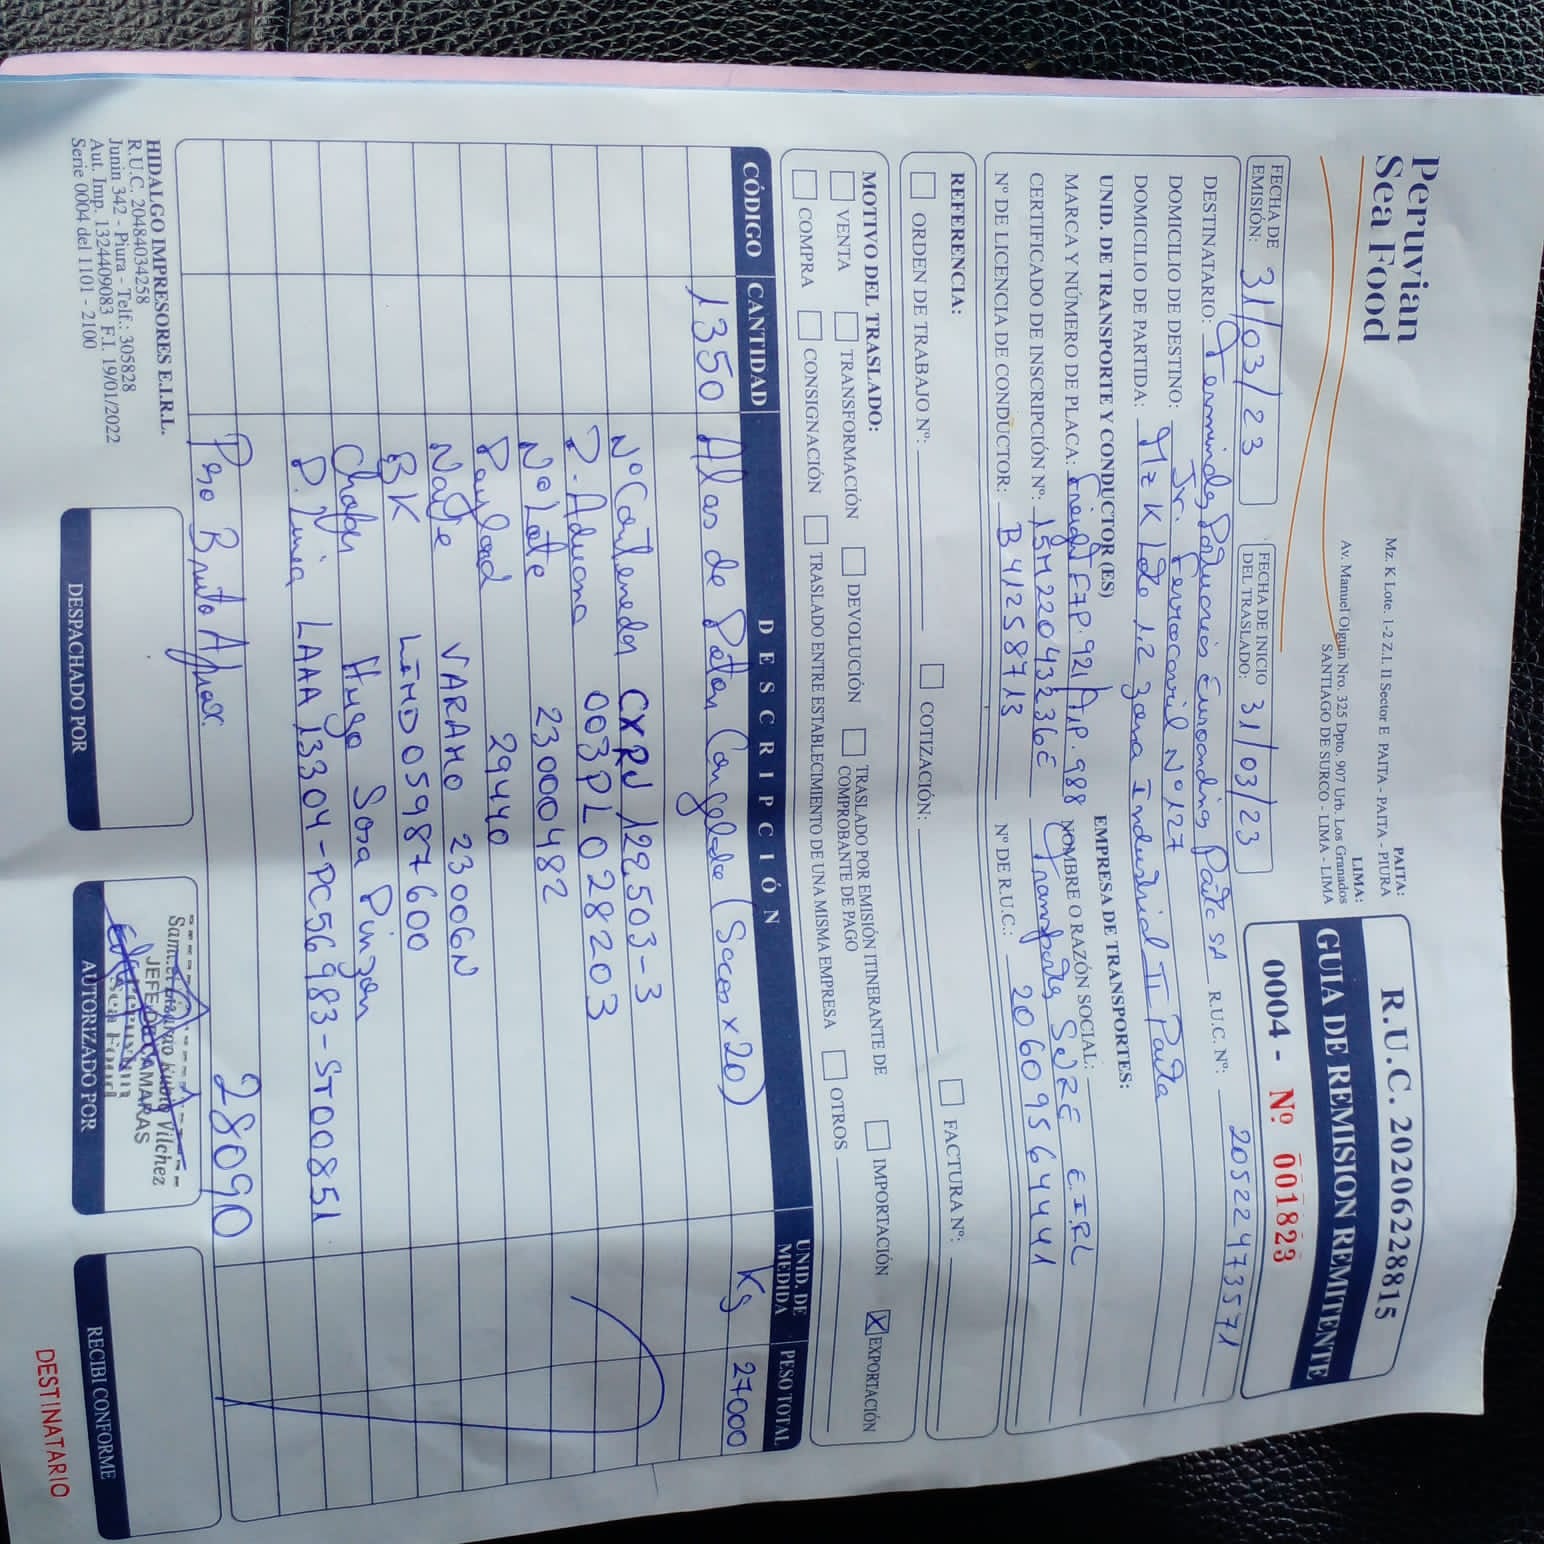 Peruvian
Sea Food
PAITA:
Mz. K Lote. 1-2 Z.I. II Sector E PAITA - PAITA - PIURA
LIMA:
Av. Manuel Olguin Nro. 325 Dpto. 907 Urb. Los Granados
SANTIAGO DE SURCO - LIMA - LIMA
R.U.C. 20206228815
GUIA DE REMISION REMITENTE
0004 - Nº 001823
FECHA DE EMISIÓN: 31/03/23
FECHA DE INICIO DEL TRASLADO: 31/03/23
DESTINATARIO: Terminales Portuarios Euroandinos Paita SA R.U.C. Nº: 20522473571
DOMICILIO DE DESTINO: Jr. Ferrocarril Nº 127
DOMICILIO DE PARTIDA: Mz K Lote 1,2 Zona Industrial II Paita
UNID. DE TRANSPORTE Y CONDUCTOR (ES)
EMPRESA DE TRANSPORTES:
MARCA Y NÚMERO DE PLACA: F7P.921/ 988
NOMBRE O RAZÓN SOCIAL: Transportes E.I.RL
CERTIFICADO DE INSCRIPCIÓN Nº: 15M22043236E
Nº DE LICENCIA DE CONDUCTOR: B41258713
Nº DE R.U.C.: 20609564441
REFERENCIA:
ORDEN DE TRABAJO Nº:
COTIZACIÓN:
FACTURA Nº:
MOTIVO DEL TRASLADO:
VENTA
TRANSFORMACIÓN
DEVOLUCIÓN
TRASLADO POR EMISIÓN ITINERANTE DE COMPROBANTE DE PAGO
IMPORTACIÓN
X EXPORTACIÓN
COMPRA
CONSIGNACIÓN
TRASLADO ENTRE ESTABLECIMIENTO DE UNA MISMA EMPRESA
OTROS
CÓDIGO CANTIDAD DESCRIPCIÓN UNID. DE MEDIDA PESO TOTAL
1350 Alas de Poton Congelado (Sacos x 20) Kg 27000
Nº Contenedor CXRU 122503-3
P. Aduana 003PL028203
Nº Lote 23000482
Payload 29440
Nave VARAMO 23006N
BK LIMD05987600
Chofer Hugo Sosa Pinzon
P. Linea LAAA13304-PC56983-ST00851
Peso Bruto Aprox. 28090
HIDALGO IMPRESORES E.I.R.L.
R.U.C. 20484034258
Junin 342 - Piura - Telf.: 305828
Aut. Imp. 1324409083 F.I. 19/01/2022
Serie 0004 del 1101 - 2100
DESPACHADO POR
Vilchez
JEFE DE CAMARAS
Sea Food
AUTORIZADO POR
RECIBI CONFORME
DESTINATARIO